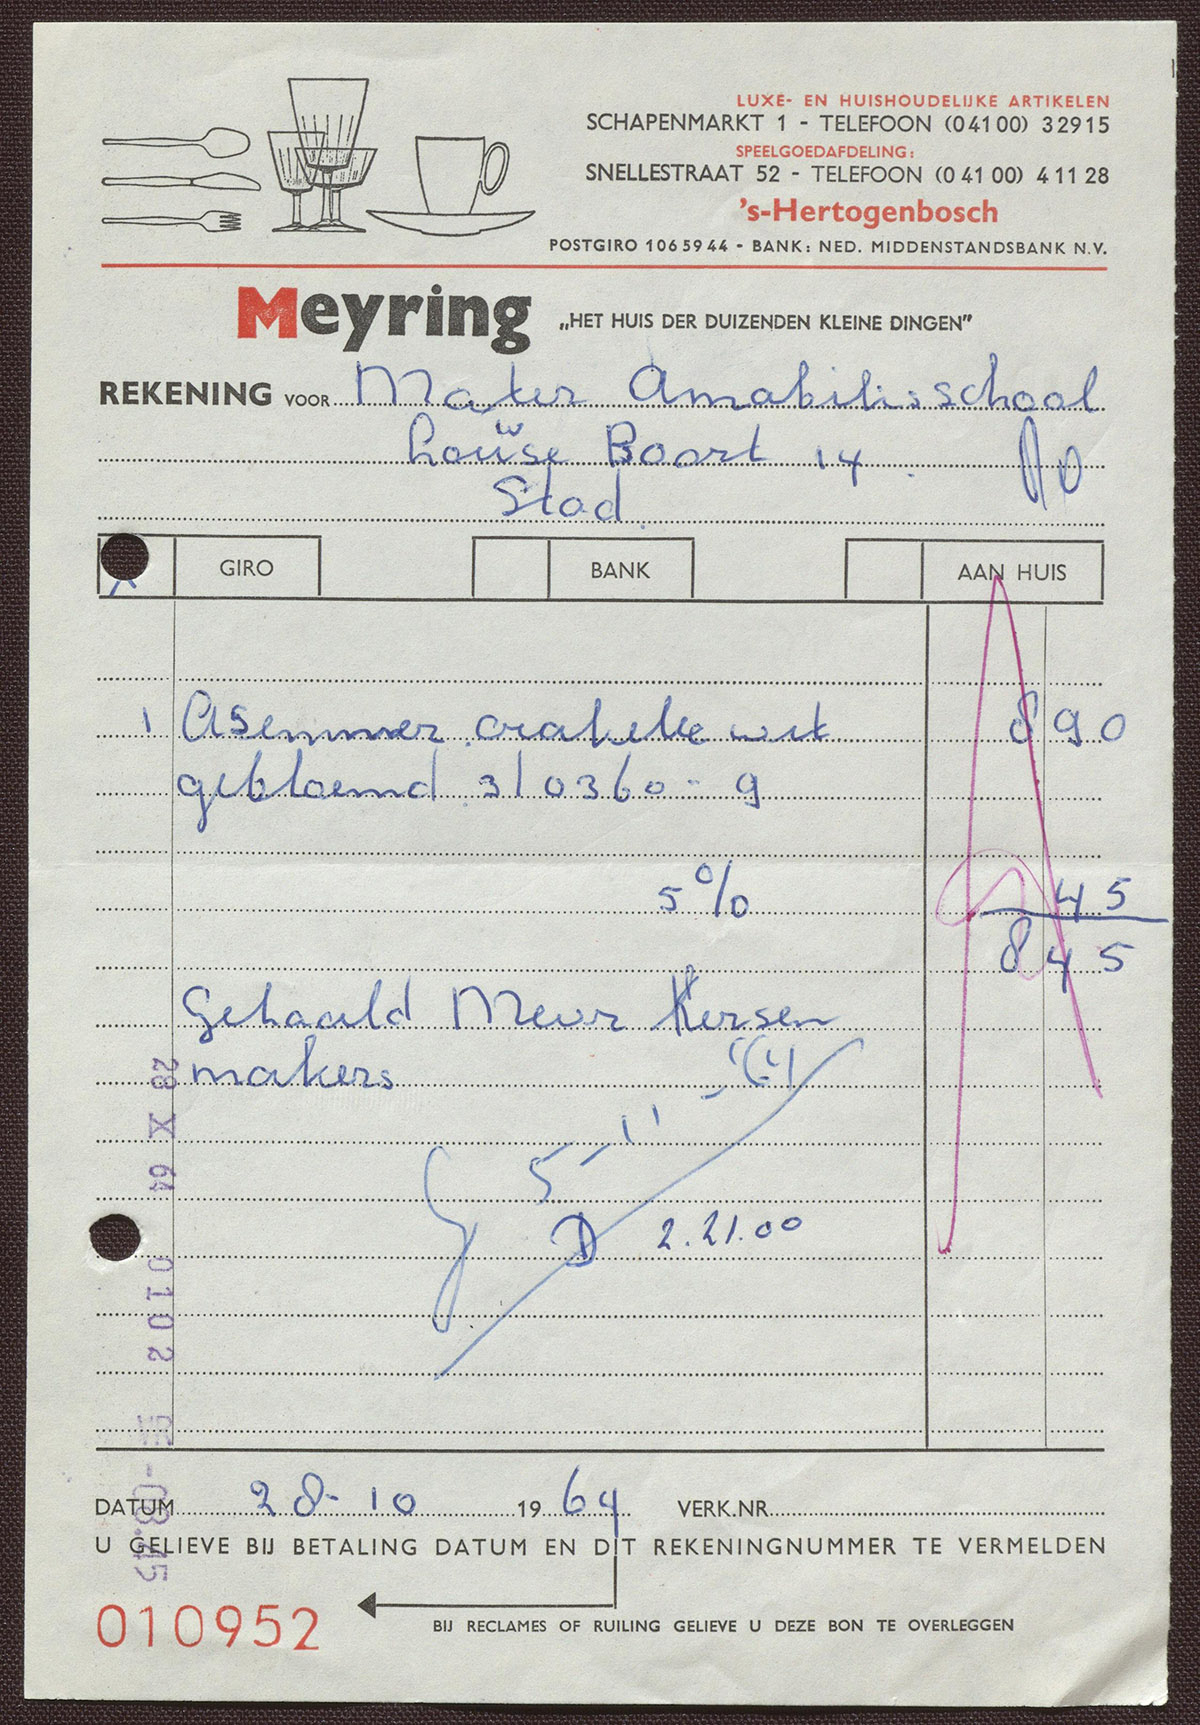 LUXE- EN HUISHOUDELIJKE ARTIKELEN
SCHAPENMARKT 1 - TELEFOON (04100) 32915
SPEELGOEDAFDELING:
SNELLESTRAAT 52 - TELEFOON (0 41 00) 4 11 28
's-Hertogenbosch
POSTGIRO 1065944 - BANK: NED. MIDDENSTANDSBANK N.V.
Meyring „HET HUIS DER DUIZENDEN KLEINE DINGEN”
REKENING VOOR Mater Amabilisschool
Boort 14
Stad
GIRO BANK AAN HUIS
1 wit 8 90
gebloemd 310360-9
5% 45
8 45
Gehaald Mevr Kersen
makers
5-11-64
D 2.21.00
28 X 64 0102 -08.45
DATUM 28-10 1964 VERK.NR.
U GELIEVE BIJ BETALING DATUM EN DIT REKENINGNUMMER TE VERMELDEN
010952
BIJ RECLAMES OF RUILING GELIEVE U DEZE BON TE OVERLEGGEN